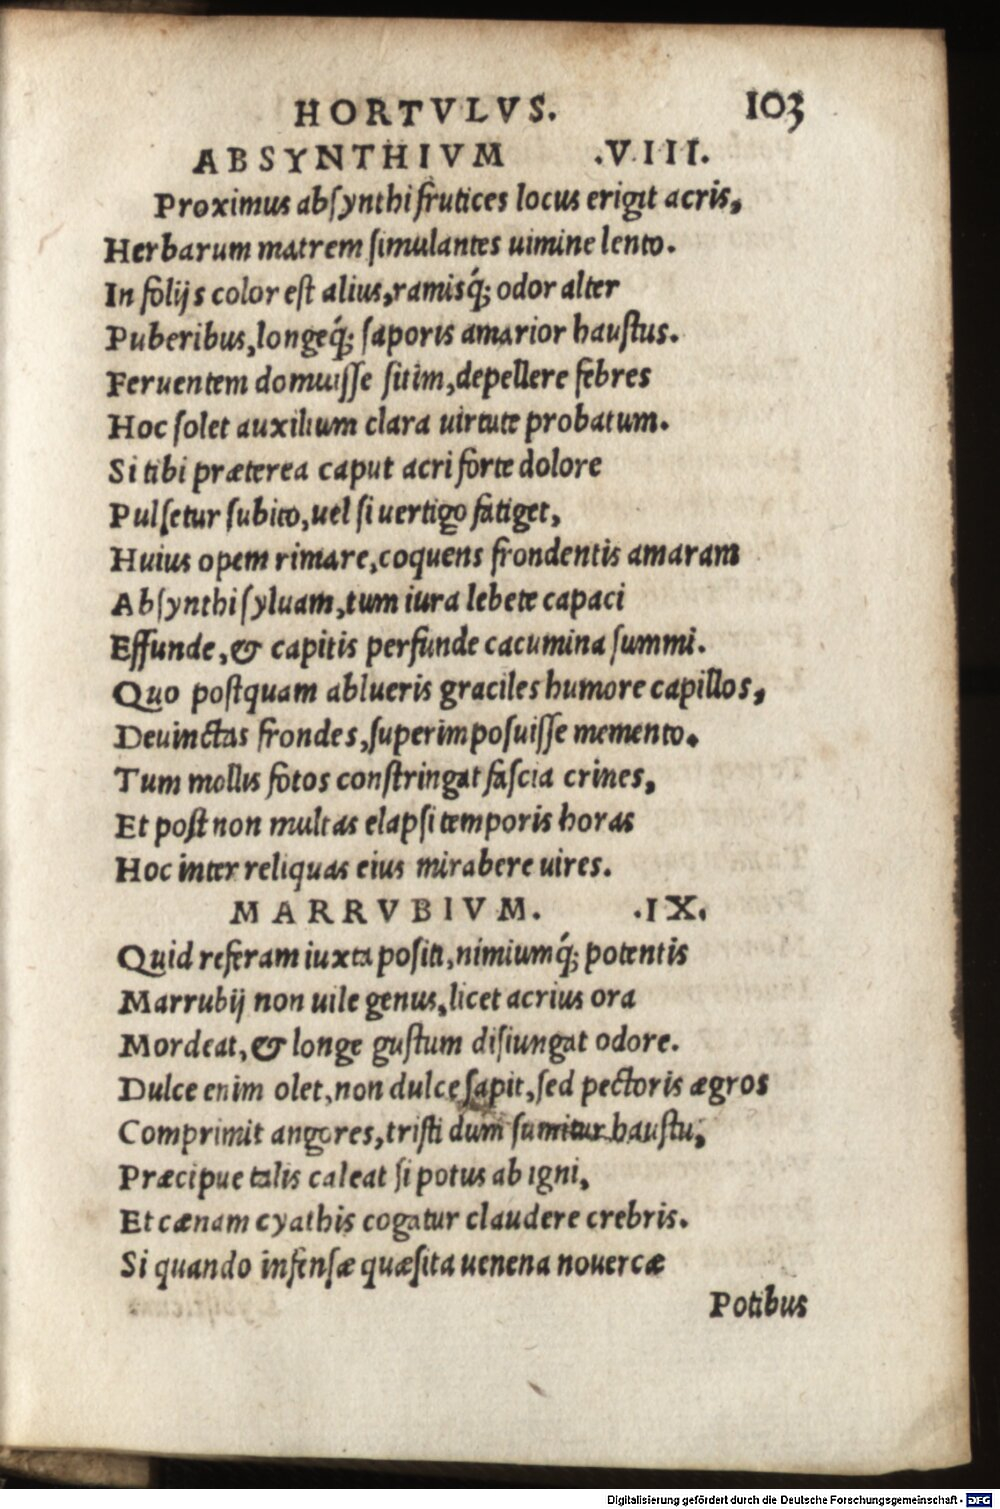 HORTVLVS. 103
ABSYNTHIVM .VIII.
Proximus absynthi frutices locus erigit acris,
Herbarum matrem simulantes uimine lento.
In folijs color est alius, ramisq́; odor alter
Puberibus, longeq́; saporis amarior haustus.
Feruentem domuisse sitim, depellere febres
Hoc solet auxilium clara uirtute probatum.
Si tibi præterea caput acri forte dolore
Pulsetur subito, uel si uertigo fatiget,
Huius opem rimare, coquens frondentis amaram
Absynthi syluam, tum iura lebete capaci
Effunde, & capitis perfunde cacumina summi.
Quo postquam ablueris graciles humore capillos,
Deuinctas frondes, superimposuisse memento.
Tum mollis fotos constringat fascia crines,
Et post non multas elapsi temporis horas
Hoc inter reliquas eius mirabere uires.
MARRVBIVM. .IX.
Quid referam iuxta positi, nimiumq́; potentis
Marrubij non uile genus, licet acrius ora
Mordeat, & longe gustum disiungat odore.
Dulce enim olet, non dulce sapit, sed pectoris ægros
Comprimit angores, tristi dum sumitur haustu,
Præcipue talis caleat si potus ab igni,
Et cænam cyathis cogatur claudere crebris.
Si quando infensæ quæsita uenena nouercæ
Potibus
Digitalisierung gefördert durch die Deutsche Forschungsgemeinschaft - DFG